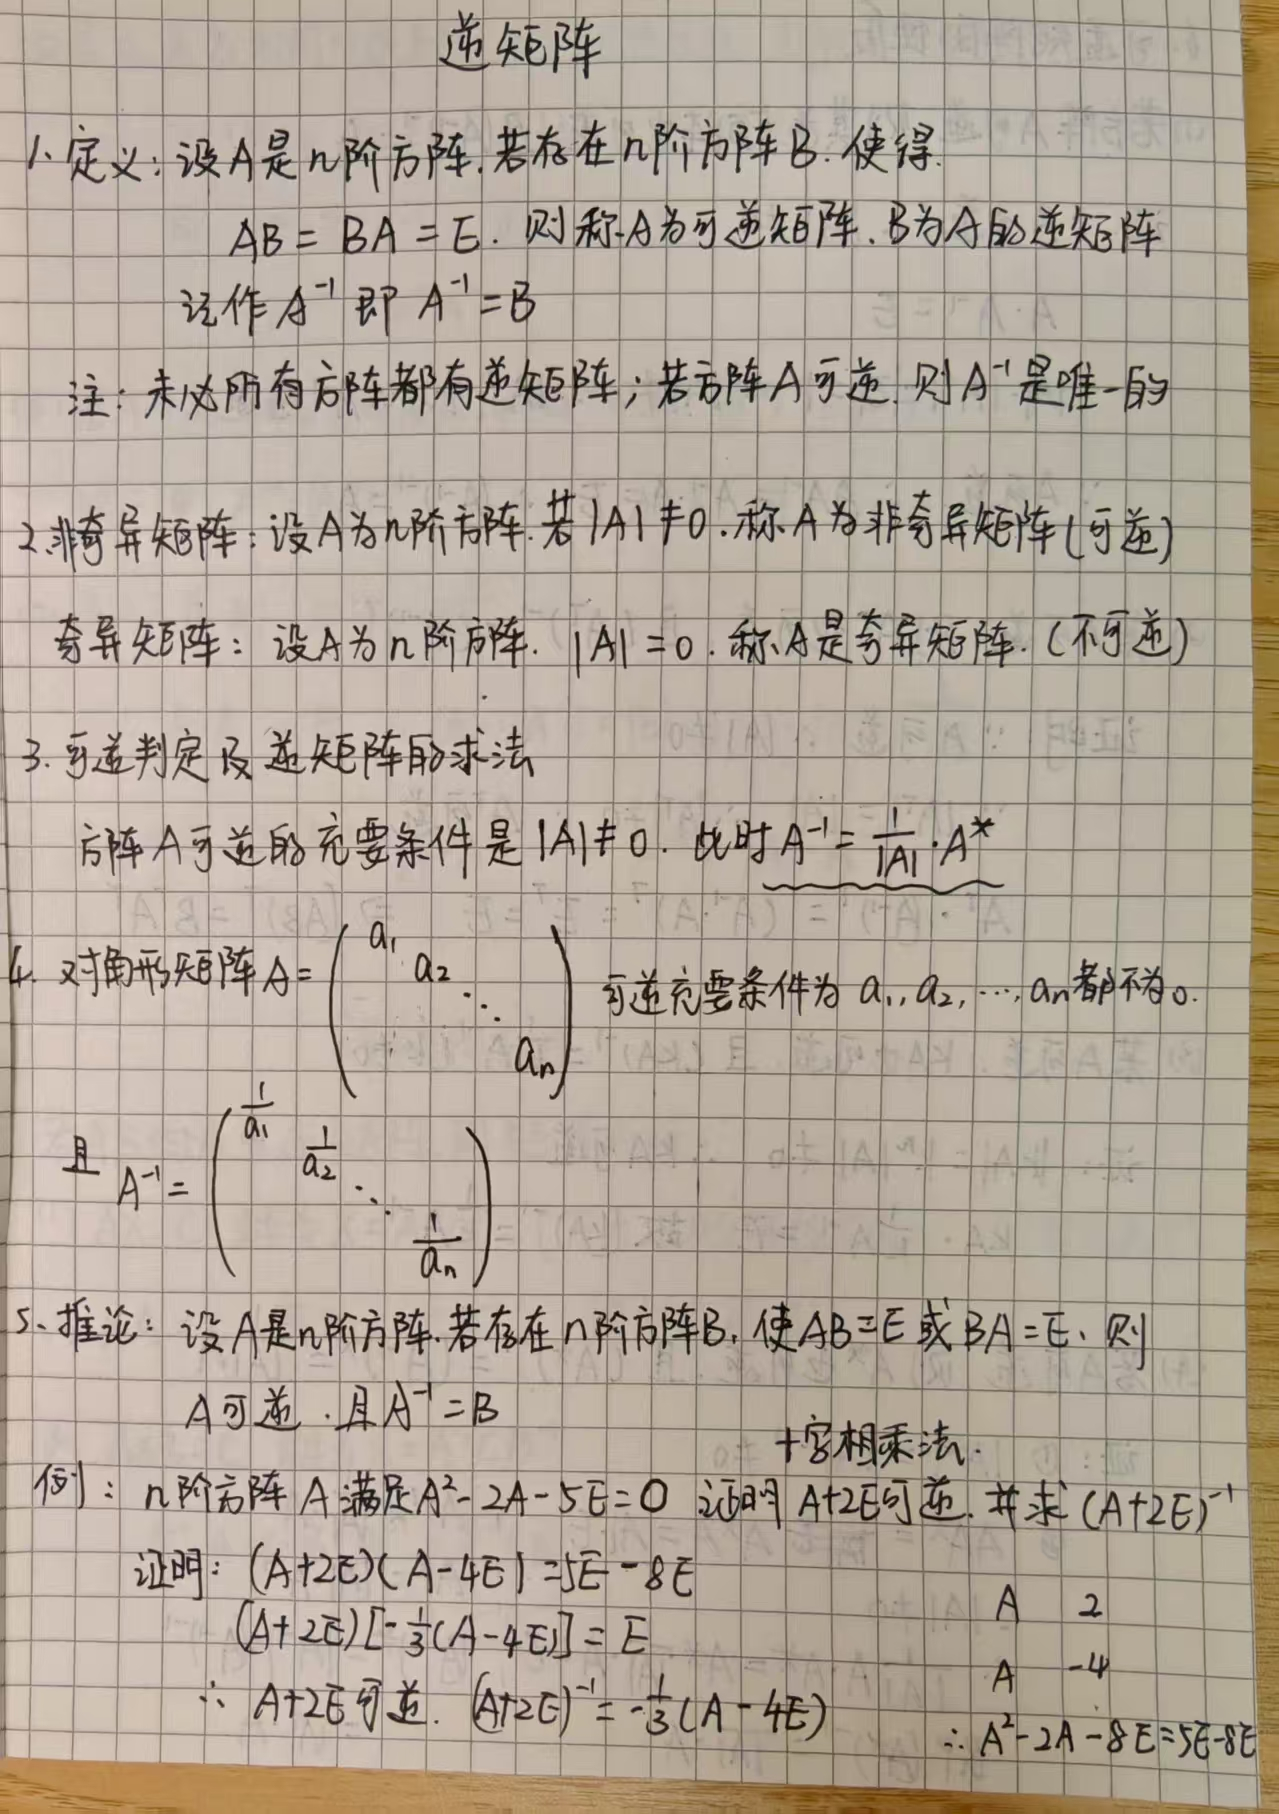 逆矩阵
1. 定义：设A是n阶方阵.若存在n阶方阵B.使得.
AB = BA = E. 则称A为可逆矩阵.B为A的逆矩阵
记作 A⁻¹ 即 A⁻¹ = B
注：未必所有方阵都有逆矩阵；若方阵A可逆.则A⁻¹是唯一的
2.非奇异矩阵：设A为n阶方阵.若|A|≠0.称A为非奇异矩阵(可逆)
奇异矩阵：设A为n阶方阵. |A|=0.称A是奇异矩阵.(不可逆)
3. 可逆判定及逆矩阵的求法
方阵A可逆的充要条件是|A|≠0. 此时A⁻¹ = 1/|A| · A*
4. 对角形矩阵A = ( a₁ a₂ ⋱ aₙ ) 可逆充要条件为 a₁, a₂, …, aₙ都不为0.
且 A⁻¹ = ( 1/a₁ 1/a₂ ⋱ 1/aₙ )
5. 推论：设A是n阶方阵.若存在n阶方阵B.使AB=E或BA=E、则
A可逆.且A⁻¹=B
十字相乘法.
例：n阶方阵A满足A²-2A-5E=0 证明A+2E可逆.并求(A+2E)⁻¹
证明：(A+2E)(A-4E)=5E-8E
(A+2E)[-1/3(A-4E)] = E
∴ A+2E可逆. (A+2E)⁻¹ = -1/3(A-4E)
A 2
A -4
∴A²-2A-8E=5E-8E